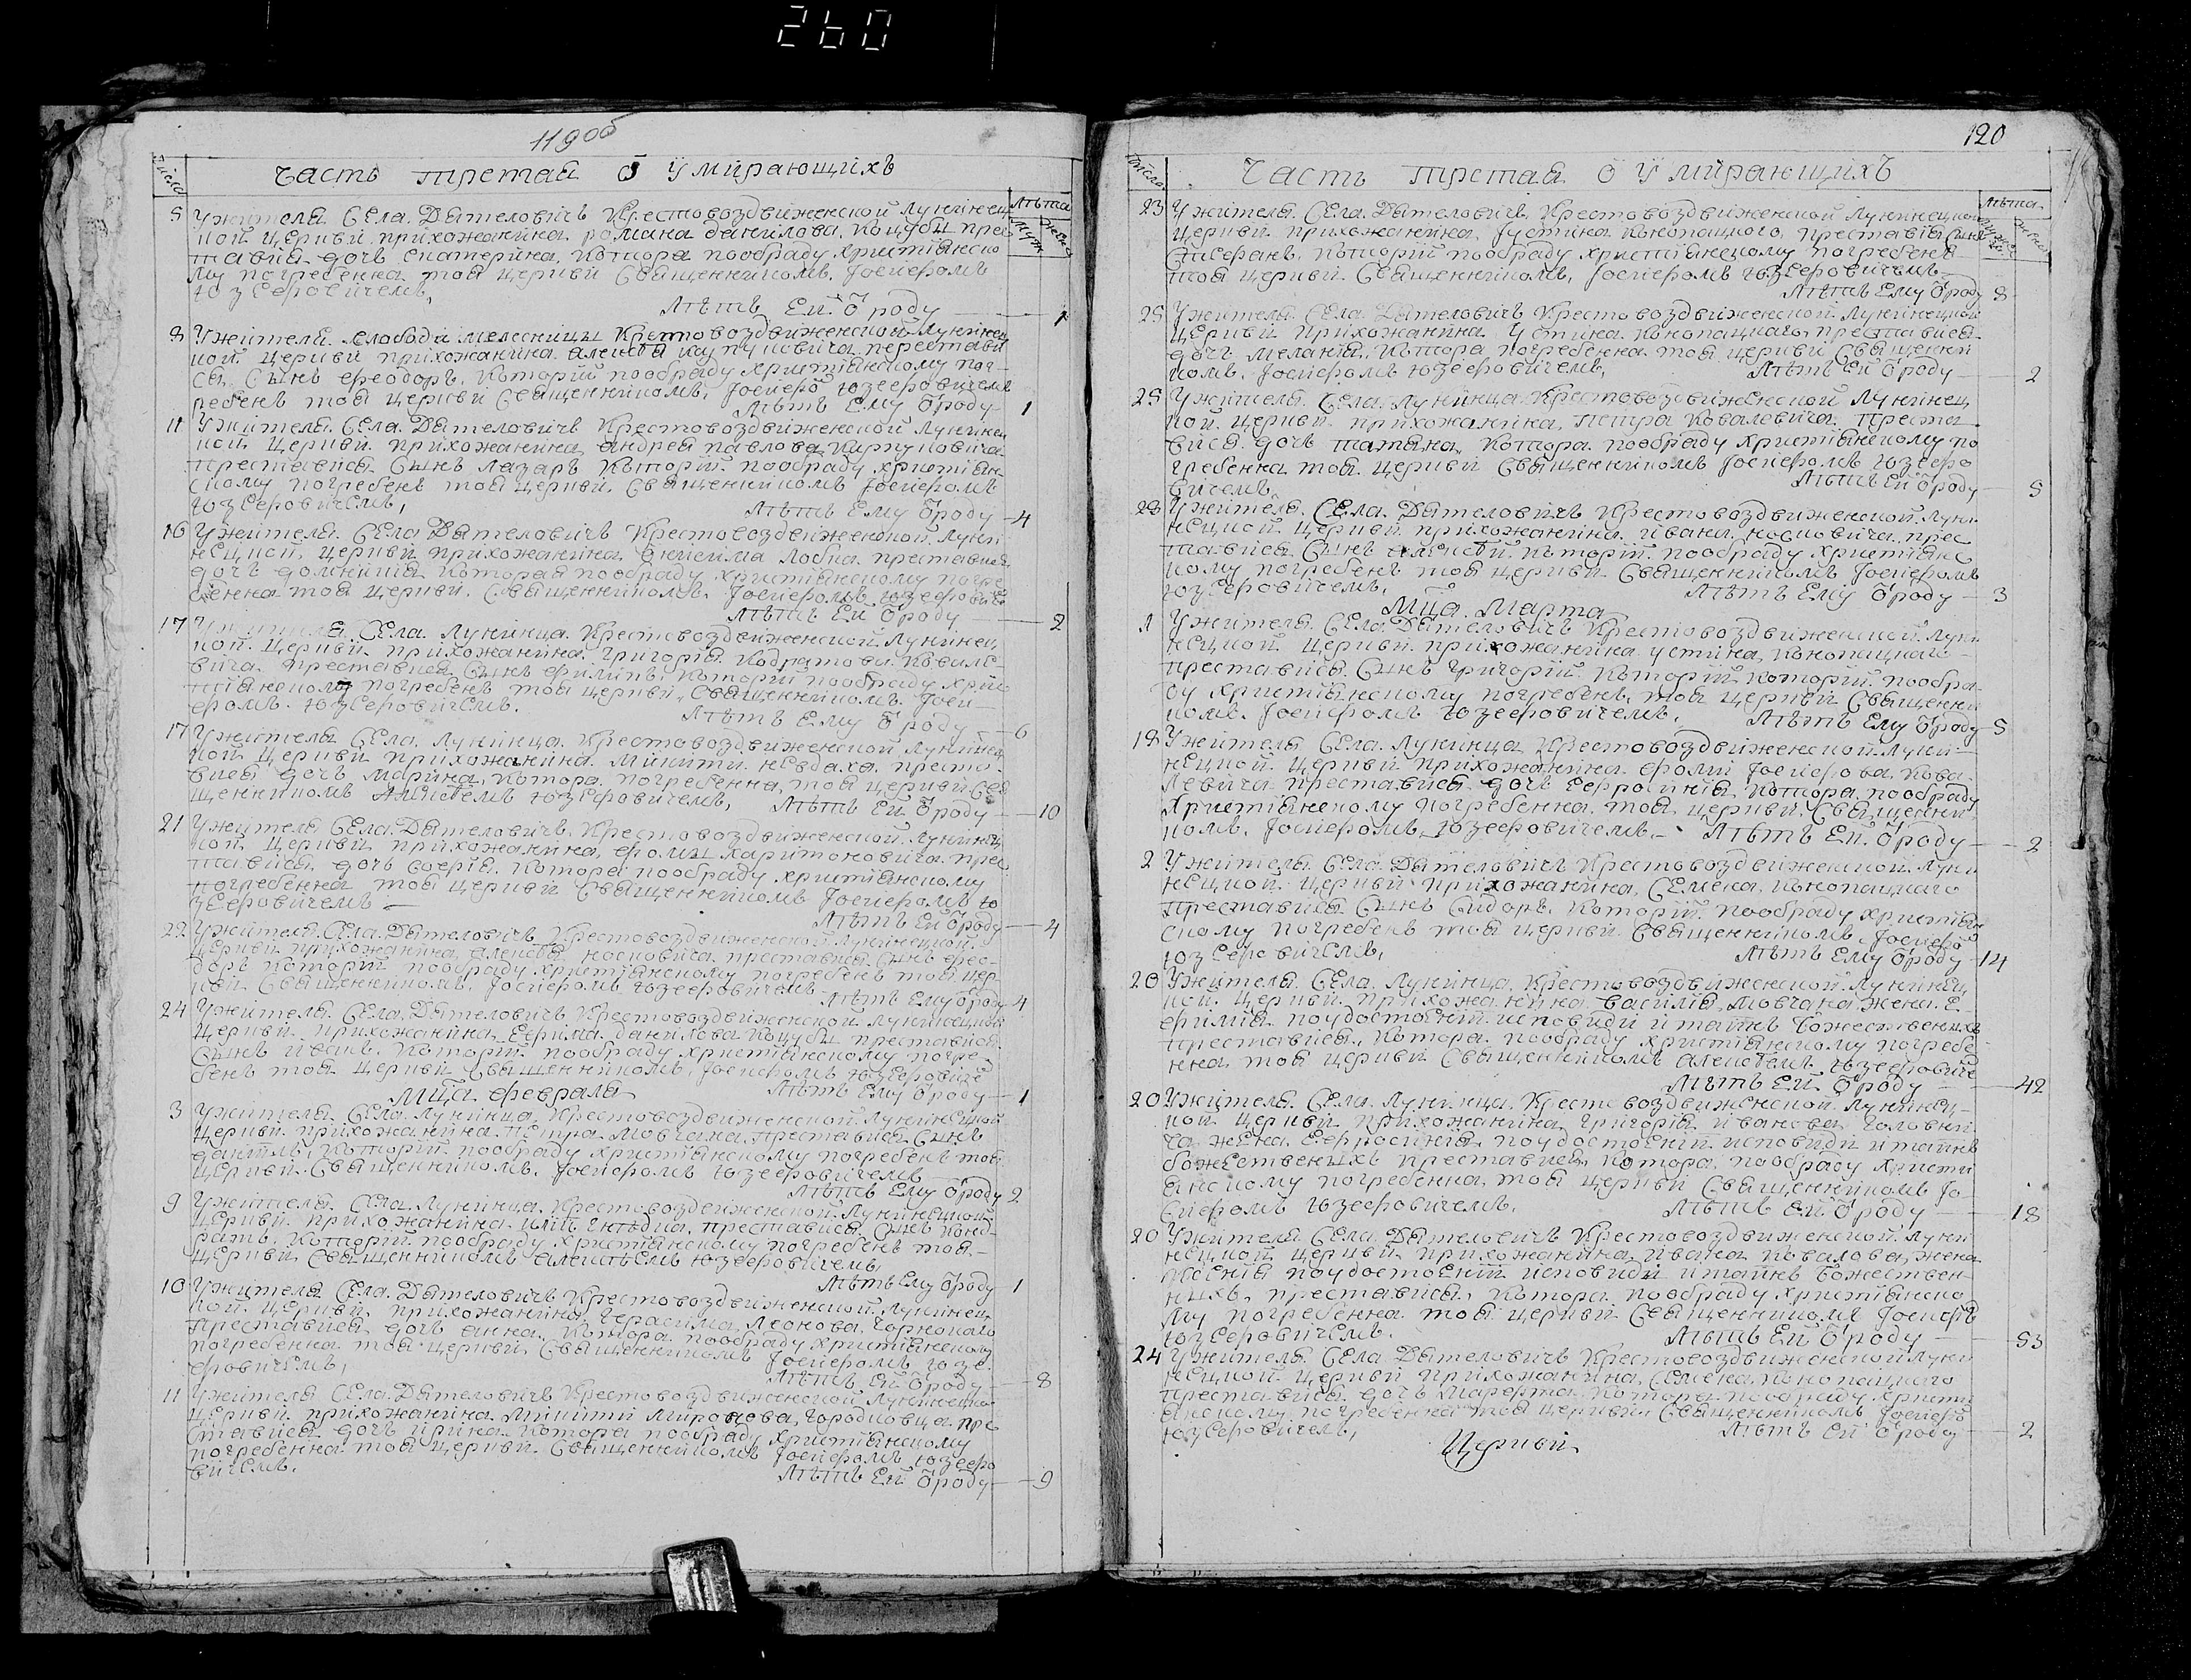 260
119об
Часть третая о Умирающихъ
число
лѣта
муж
женс
5 Ужителя Села Дятеловичъ Крестовоздвиженской Лунинец
кой церкви прихожанина романа данилова Коцубы прес
тавис дочь екатерина, котора пообряду христіанско
му погребенна тоя церкви Священникомъ Іосифомъ
юзефовичемъ, Лѣтъ Ей Ѿроду 1
8 Ужителя слободи мелесницы Крстовоздвиженской Лунинец
кой церкви прихожанина алексѣя перестави
ся Сынъ феодоръ, Которій пообряду христіанскому пог
ребенъ тоя церкви Священникомъ Іосифо юзефовичемъ
Лѣтъ Ему Ѿроду 1
11 Ужителя Села Дятеловичъ Крестовоздвиженской Лунинец
кой Церкви прихожанина андрея павлова Карпуковича
преставися Сынъ Лазаръ Которій пообряду христіян
скому погребенъ тоя церкви Священникомъ Іосифомъ
юзефовичемъ, Лѣтъ Ему Ѿроду 4
16 Ужителя Села Дятеловичъ Крестовоздвиженской Луни
нецкой церкви прихожанина Онисима Лобка преставися
дочъ домникия Которая пообряду христіянскому погре
бенна тоя церкви Священникомъ Іосифомъ юзефовиче
Лѣтъ Ей Ѿроду 2
17 Ужителя Села Лунинца Крестовоздвиженской Лунинец
кой Церкви прихожанина Григорія Кодратова Ковале
вича преставися Сынъ филипъ Которій пообряду хрис
тіянскому погребенъ тоя церкви Священникомъ Іоси
фомъ юзефовичемъ. Лѣтъ Ему Ѿроду 6
17 Ужителя Села Лунинца Крестовоздвиженской Лунинец
кой Церкви прихожанина Микити невдаха преста
вися дочъ марина, Котора погребенна, тоя церкви Свя
щенникомъ Алексѣемъ юзефовичемъ, Лѣтъ Ей Ѿроду 10
21 Ужителя Села Дятеловичъ Крестовоздвиженской Лунинец
кой Церкви прихожанина, фомы харитоновича прес
тавися дочъ софія Котора пообряду христіянскому
погребенна тоя церкви Священникомъ Іосифомъ ю
зефовичемъ Лѣтъ Ей Ѿроду 4
22 Ужителя Села Дятеловичъ Крестовоздвиженской Лунинецкой
Церкви прихожанина алексѣя носковича преставися Сынъ фео
доръ Которій пообряду христіянскому погребенъ тоя цер
кви Священникомъ Іосифомъ юзефовичемъ Лѣтъ Ему Ѿроду 4
24 Ужителя Села Дятеловичъ Крестовоздвиженской Лунинецкой
Церкви прихожанина Ефима данилова Коцубы преставися
Сынъ иванъ Которій пообряду христіянскому погре
бенъ тоя Церкви Священникомъ, Іосифомъ юзефовиче
Лѣтъ Ему Ѿроду 1
Мца февраля
3 Ужителя Села Лунинца Крестовоздвиженской Лунинецкой
Церкви прихожанина Петра Мовчана преставися Сынъ
даніилъ Которій пообряду христіянскому погребенъ тоя
церкви Священникомъ Іосифомъ юзефовичемъ
Лѣтъ Ему Ѿроду 2
9 Ужителя Села Лунинца Крестовоздвиженской Лунинецкой
Церкви прихожанина иліи гнѣдка преставися Сынъ Конд
ратъ Которій пообряду христіянскому погребенъ тоя
церкви Священникомъ алексѣемъ юзефовичемъ
Лѣтъ Ему Ѿроду 1
10 Ужителя Села Дятеловичъ Крестовоздвиженской Лунинец
кой Церкви прихожанина Герасима Леонова Чорнокаго
преставися дочъ анна Котора пообряду христіянскому
погребенна тоя церкви Священникомъ Іосифомъ юзе
фовичемъ, Лѣтъ Ей Ѿроду 8
11 Ужителя Села Дятеловичъ Крестовоздвиженской Лунинецкой
Церкви прихожанина Микити Миронова, Городковца пре
ставися дочъ ирина Котора пообряду христіянскому
погребенна тоя церкви Священникомъ Іосифомъ юзефо
вичемъ. Лѣтъ Ей Ѿроду 9
120
Часть третая о Умирающихъ
число
лѣта
23 Ужителя Села Дятеловичъ Крестовоздвиженской Лунинецкой
Церкви прихожанина Іустина Конопацкого, преставися Сынъ
Стефанъ, Которій пообряду христіянскому погребенъ
тоя церкви Священникомъ, Іосифомъ юзефовичемъ
Лѣтъ Ему Ѿроду 8
25 Ужителя Села Дятеловичъ Крестовоздвиженской Лунинецкой
Церкви прихожанина Устина Конопацкаго преставися
дочъ меланія, Котора погребенна тоя церкви Священни
комъ Іосифомъ юзефовичемъ, Лѣтъ Ей Ѿроду 2
25 Ужителя Села Лунинца Крестовоздвиженской Лунинец
кой церкви прихожанина, Петра Ковалевича Преста
вися дочъ татяна, Котора пообряду христіянскому по
гребенна тоя церкви Священникомъ Іосифомъ юзефо
вичемъ. Лѣтъ Ей Ѿроду 5
28 Ужителя Села Дятеловичъ Крестовоздвиженской Луни
нецкой церкви прихожанина ивана носковича прес
тавися Сынъ алексѣй Которій пообряду христіянс
кому погребенъ тоя церкви Священникомъ Іосифомъ
юзефовичемъ, Лѣтъ Ему Ѿроду 3
Мца Марта
1 Ужителя Села Дятеловичъ Крестовоздвиженской Луни
нецкой церкви прихожанина устина, Конопацкаго
преставися Сынъ григорій Которій Которій пообря
ду христіянскому погребенъ, тоя церкви Священни
комъ, Іосифомъ юзефовичемъ, Лѣтъ Ему Ѿроду 5
18 Ужителя Села Лунинца Крестовоздвиженской Луни
нецкой церкви прихожанина фоми Іосифова, Кова
левича преставися дочъ Еефросинія Котора пообряду
христіянскому погребенна тоя церкви Священни
комъ Іосифомъ юзефовичемъ, Лѣтъ Ей Ѿроду 2
2 Ужителя Села Дятеловичъ Крестовоздвиженской Луни
нецкой Церкви прихожанина, Семена, Конопацкаго
преставися Сынъ Сидоръ, Которій пообряду христіян
скому погребенъ тоя церкви Священникомъ Іосифо
юзефовичемъ, Лѣтъ Ему Ѿроду 14
20 Ужителя Села Лунинца Крестовоздвиженской Лунинец
кой церкви прихожанина василія, мовчана жена Е
фимія поудостоеній исповиди и таинъ Божественыхъ
преставися, Котора пообряду христіянскому погребе
нна тоя церкви Священникомъ алексѣемъ юзефовиче
Лѣтъ Ей Ѿроду 42
20 Ужителя Села Лунинца Крестовоздвиженской Лунинец
кой церкви прихожанина григорія иванова головни
ча жена Еефросинія поудостоеній исповиди и таинъ
божественыхъ преставися Котора пообряду христи
анскому погребенна, тоя церкви Священникомъ Іо
сифомъ юзефовичемъ, Лѣтъ Ей Ѿроду 18
20 Ужителя Села Дятеловичъ Крестовоздвиженской Луни
нецкой церкви прихожанина ивана Ковалова, жена
Ксенія поудостоеній исповиди и таинъ Божествен
ныхъ, преставися, Котора пообряду христіянско
му погребенна тоя церкви Священникомъ Іосифо
юзефовичемъ. Лѣтъ Ей Ѿроду 53
24 Ужителя Села Дятеловичъ Крестовоздвиженской Луни
нецкой церкви прихожанина, Семена, Конопацкаго
преставися дочъ Марфа Котора пообряду христи
анскому погребенна тоя церкви Священникомъ Іосифо
юзефовичемъ, Лѣтъ Ей Ѿроду 2
Церкви